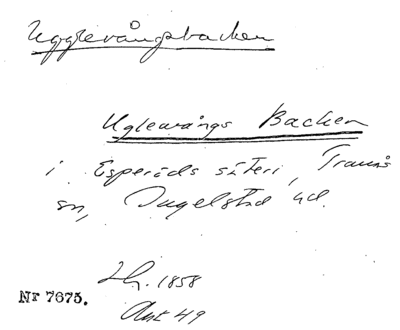 Ugglevångsbacken
Uglewångs Backen
i Esperöds säteri, Tranås
sn, Ingelstad hd.
Lh. 1858
Nr 7675.
Akt 49